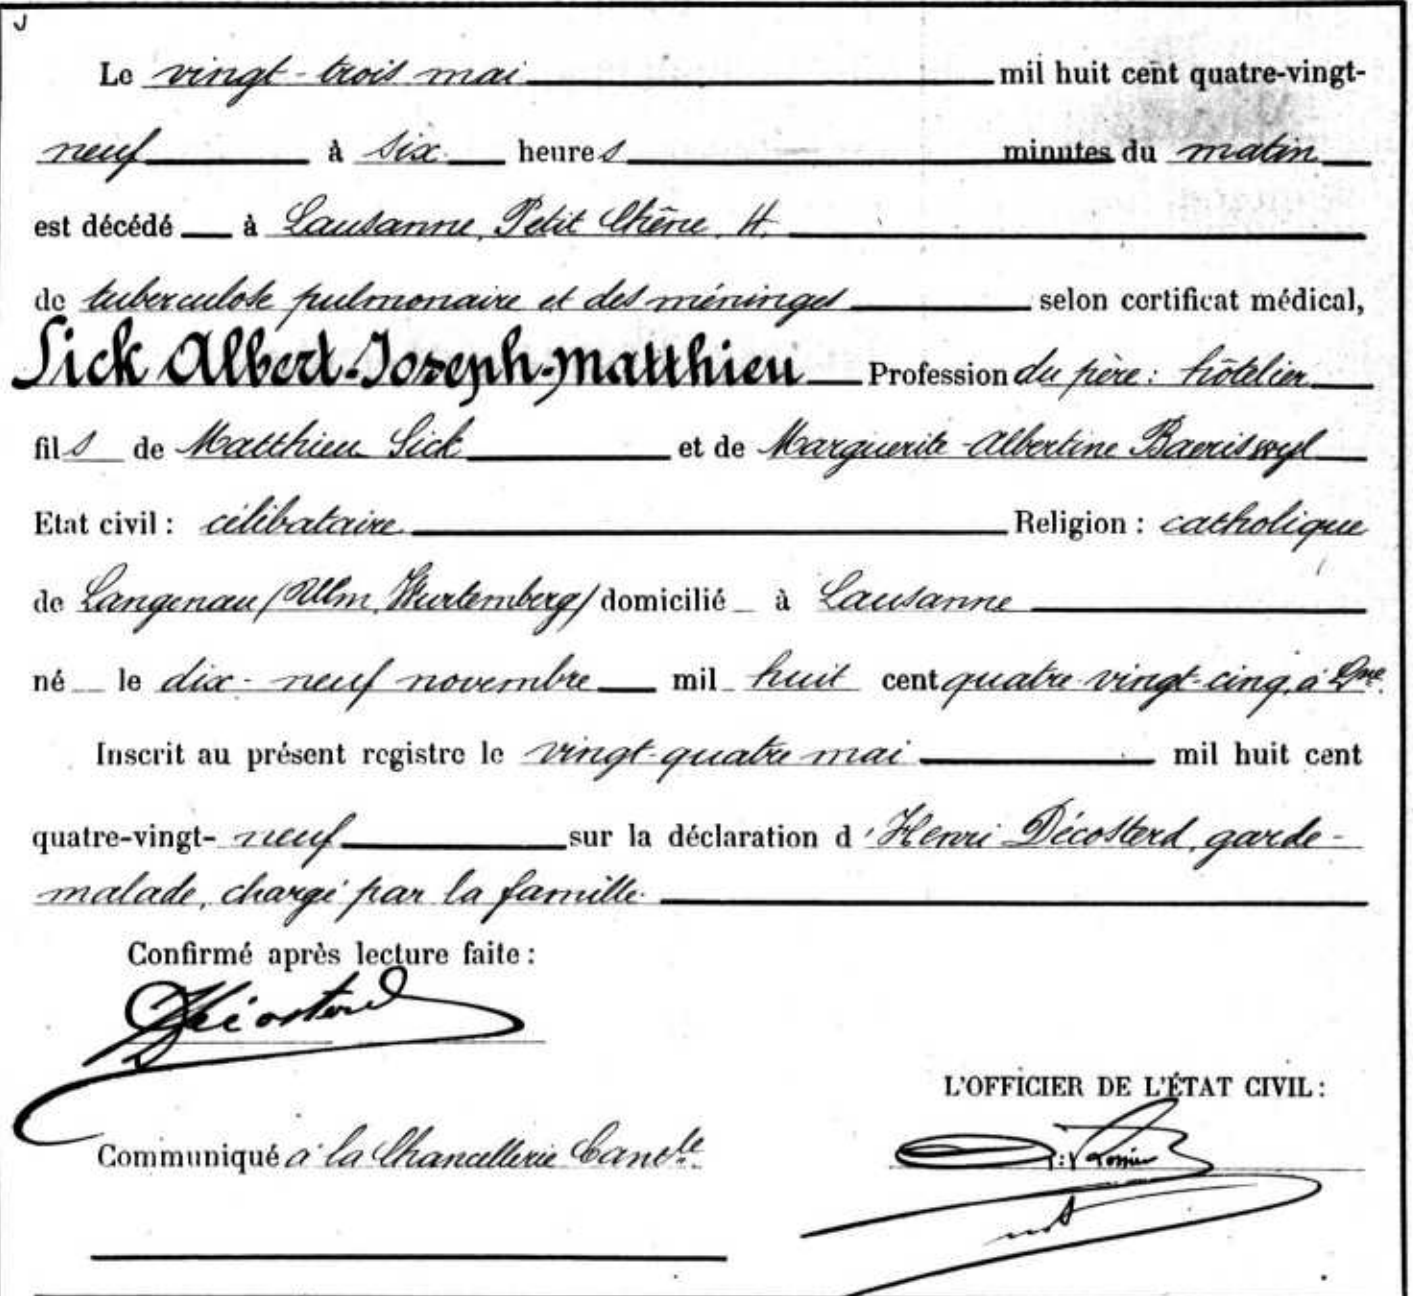 Le vingt-trois mai mil huit cent quatre-vingt-
neuf à six heures minutes du matin
est décédé à Lausanne, Petit Chêne, 4.
de tuberculose pulmonaire et des méninges selon certificat médical,
Sick Albert-Joseph-Matthieu Profession du père: hôtelier
fils de Matthieu Sick et de Marguerite-Albertine Baeriswyl
Etat civil: célibataire Religion: catholique
de Langenau (Ulm, Wurtemberg) domicilié à Lausanne
né le dix-neuf novembre mil huit cent quatre vingt-cinq, à Lne.
Inscrit au présent registre le vingt-quatre mai mil huit cent
quatre-vingt-neuf sur la déclaration d'Henri Décosterd, garde-
malade, chargé par la famille.
Confirmé après lecture faite:
Décosterd
L'OFFICIER DE L'ÉTAT CIVIL:
Communiqué à la Chancellerie Cantle.